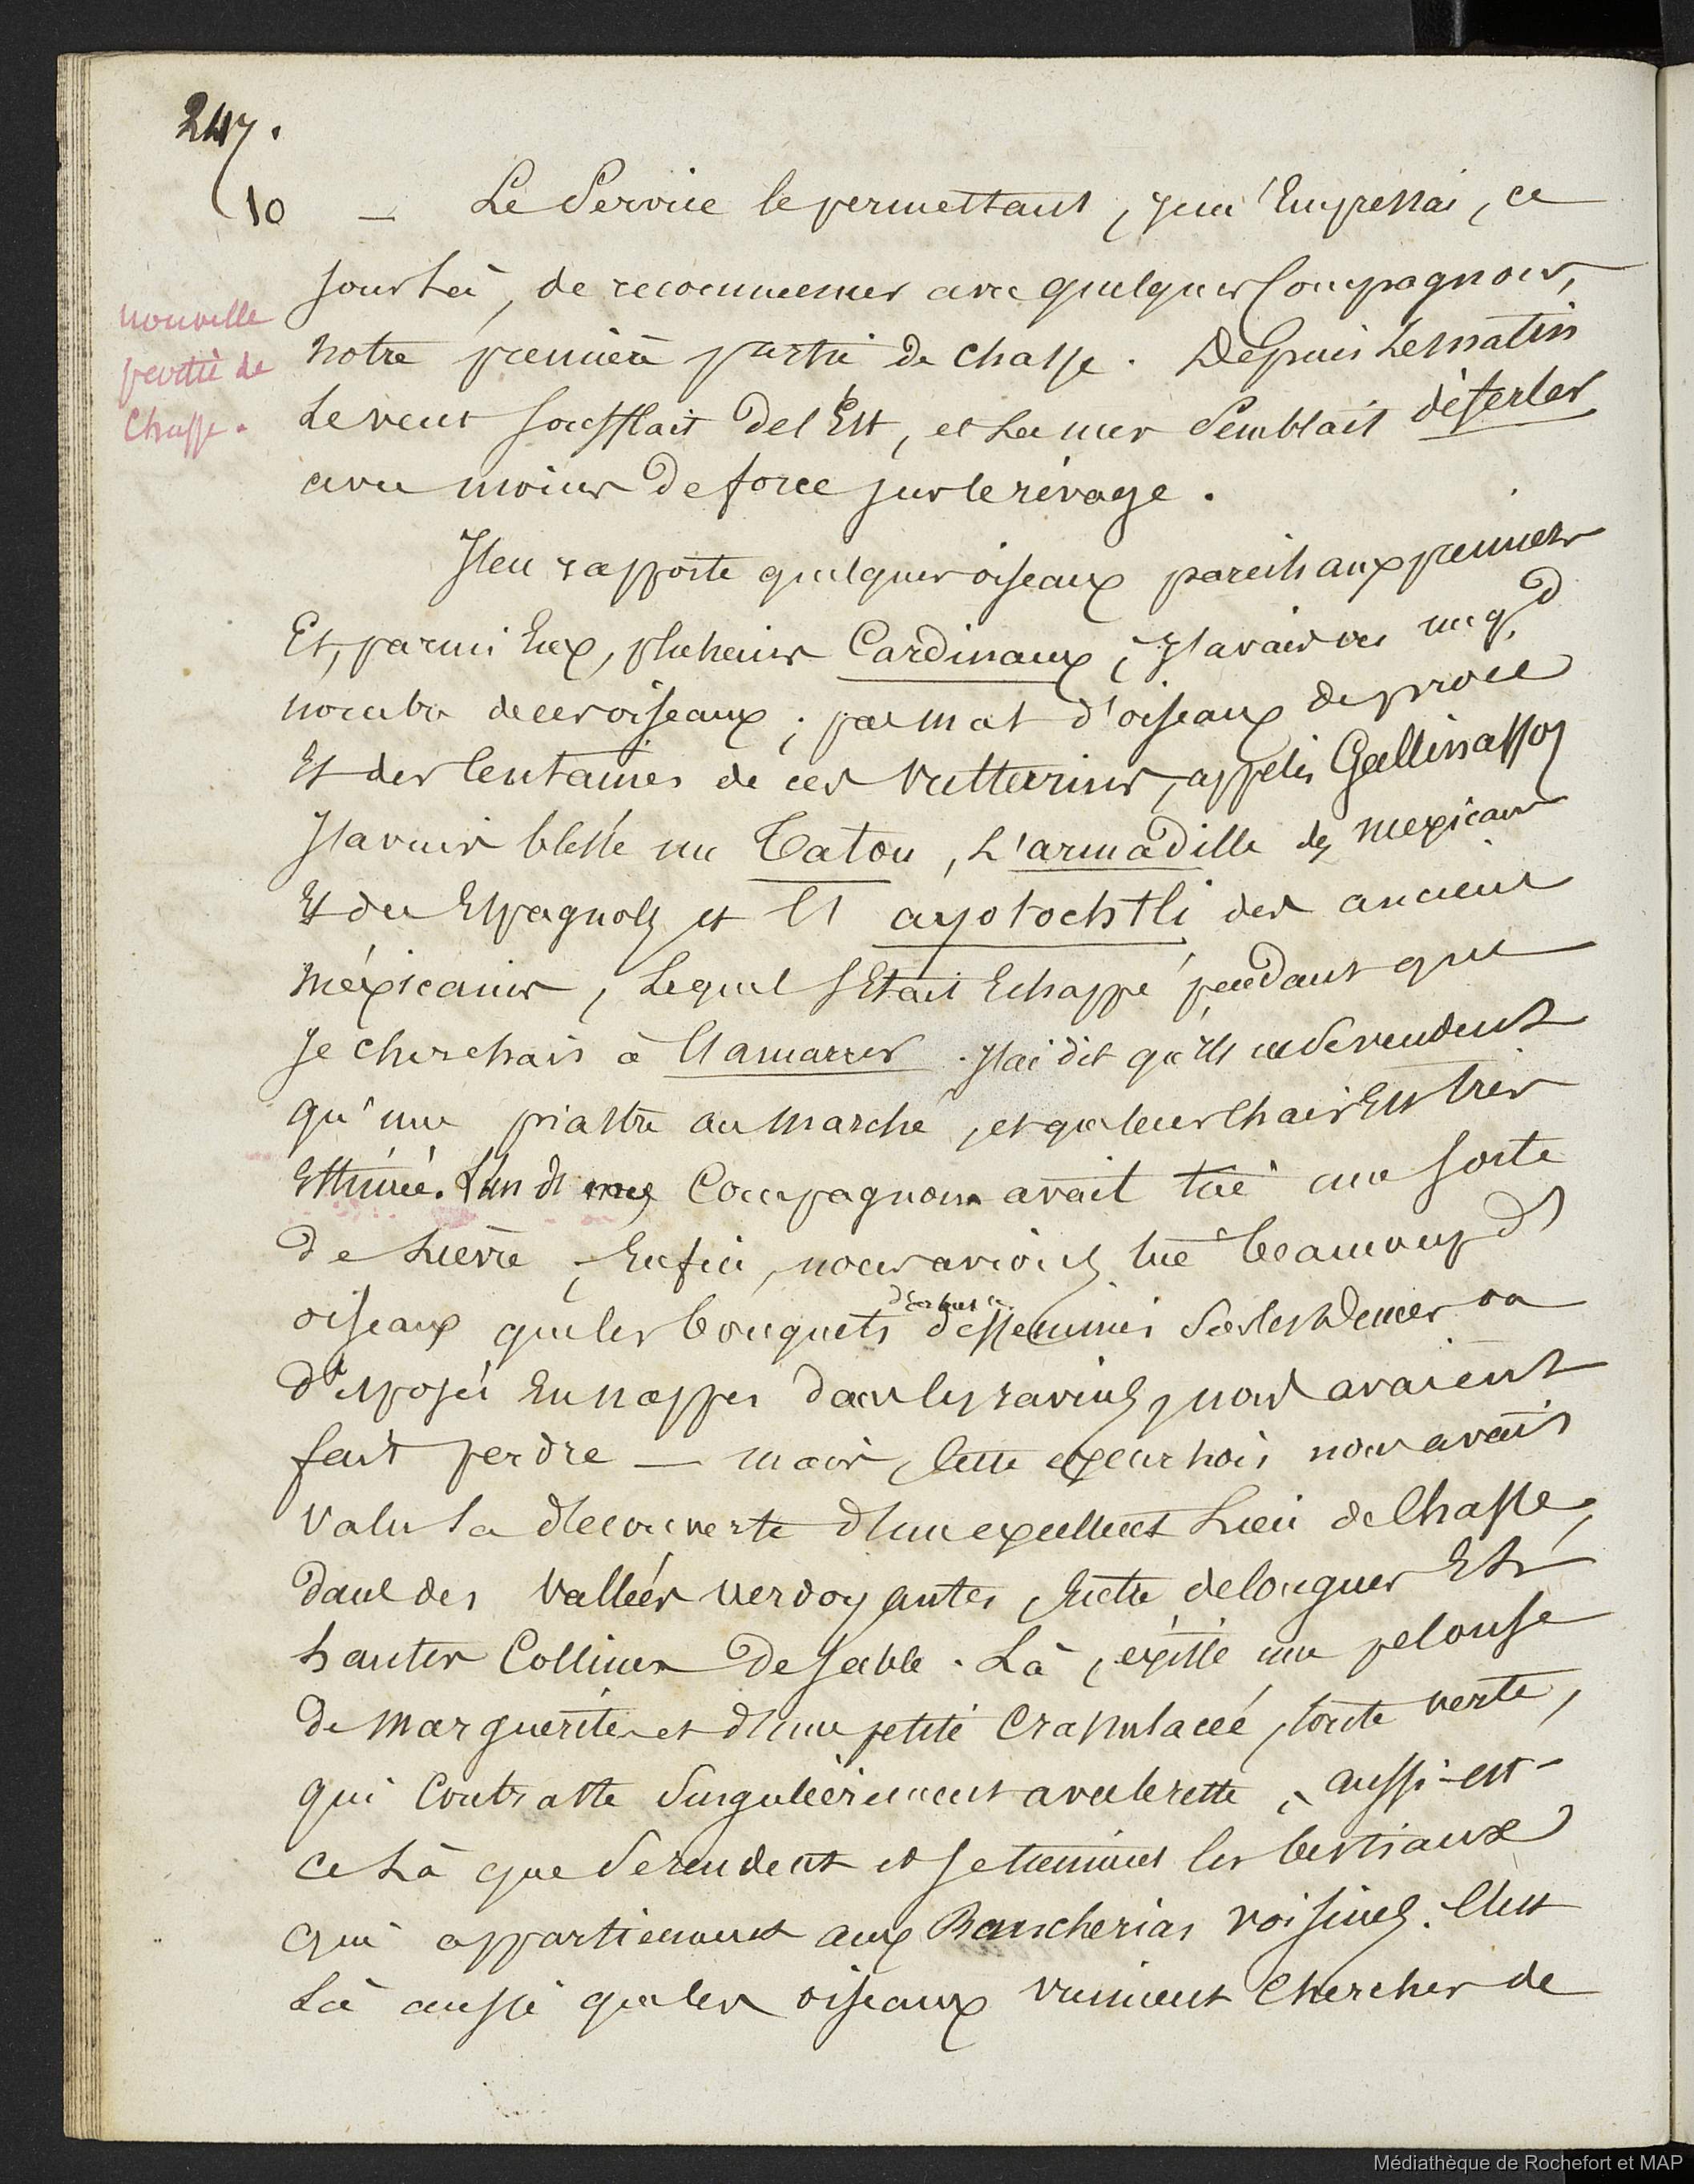 247.
10 — Le Service le permettant, je m'Empressai, ce
jour là, de recommencer avec quelques Compagnons,
nouvelle
partie de
Chasse.
notre première partie de chasse. Depuis le matin
le vent soufflait de l'Est, et la mer Semblait déferler
avec moins de force sur le rivage.
J'en rapporte quelques oiseaux pareils aux premiers
Et, parmi Eux, plusieurs Cardinaux ; J'avais vu un gd
nombre de ces oiseaux ; pas mal d'oiseaux de proie
Et des Centaines de ces Vulturins, appelés Gallinassos
J'avais blessé un Tatou, L'armadille des mexicains
Et des Espagnols et l'ayotochtli des anciens
méxicains, Lequel s'Etait Echappé pendant que
Je cherchais à l'amarrer. J'ai dit qu'ils ne se vendent
qu'une piastre au marché, et que leur Chair Est très
Estimée. L'un de mes Compagnons avait tué une sorte
de Lièvre ; Enfin, nous avions tué beaucoup d'
oiseaux que les bouquets d'arbustes disséminés sur les Dunes ou
disposés En nappes dans les ravins, nous avaient
fait perdre — mais, cette excursion nous avait
valu la découverte d'un excellent Lieu de Chasse,
dans des Vallées verdoyantes, Entre de longues Et
hautes Collines de sable. Là, existe une pelouse
de marguerites et d'une petite Crassulacée, toute verte,
qui Contraste Singulièrement avec le reste ; aussi-est-
ce là que Se rendent et se tiennent les bestiaux
qui appartiennent aux Rancherias voisines. C'est
Là aussi que les oiseaux viennent Chercher de
Médiathèque de Rochefort et MAP